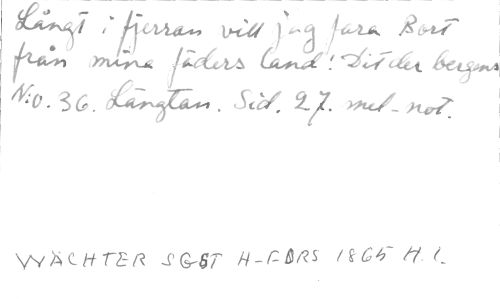 Långt i fjerran vill jag fara Bort
från mina fäders land! Dit der bergens
N:o. 36. Längtan. Sid. 27. mel-not.
WÄCHTER SGST H-FORS 1865 H.1.